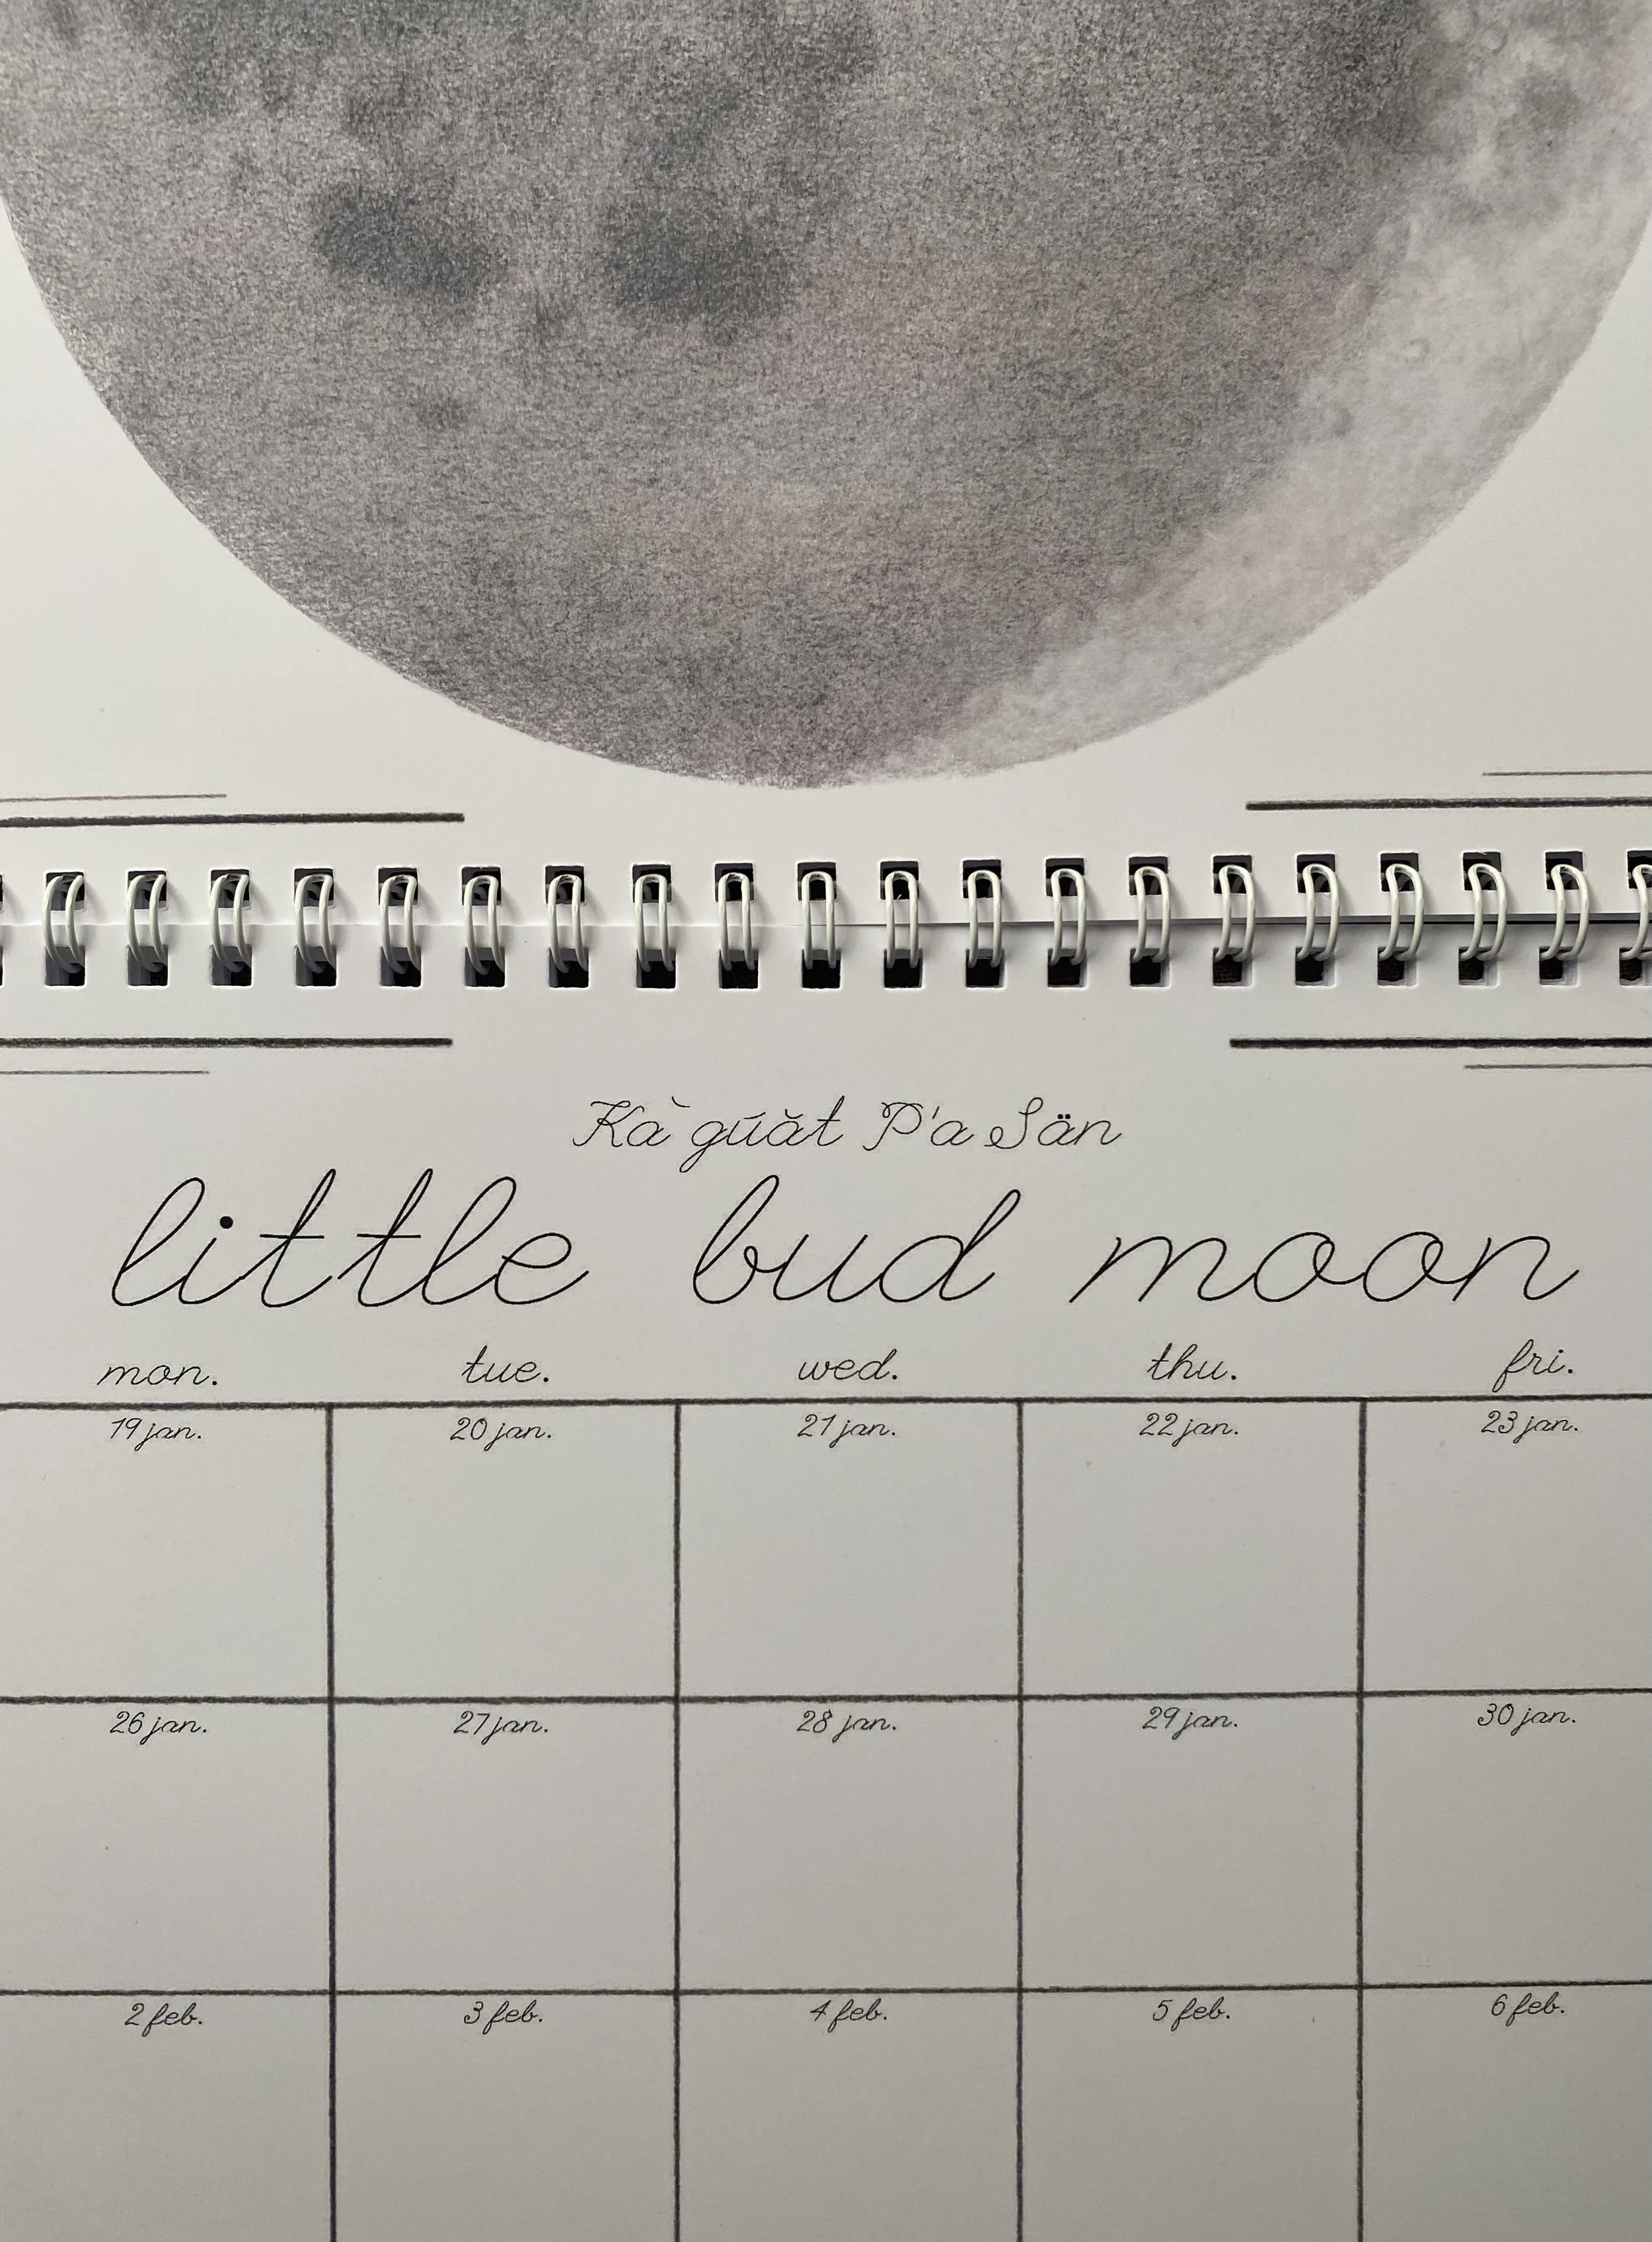 Kà gúăt P'a Sän
little bud moon
mon. tue. wed. thu. fri.
19 jan. 20 jan. 21 jan. 22 jan. 23 jan.
26 jan. 27 jan. 28 jan. 29 jan. 30 jan.
2 feb. 3 feb. 4 feb. 5 feb. 6 feb.